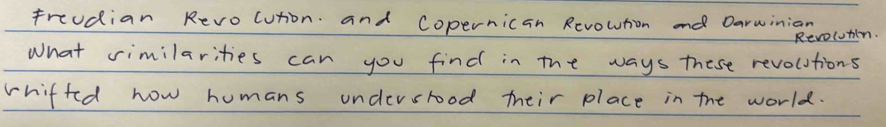 Freudian Revolution. and Copernican Revolution and Darwinian
Revolution.
What similarities can you find in the ways these revolutions
shifted how humans understood their place in the world.